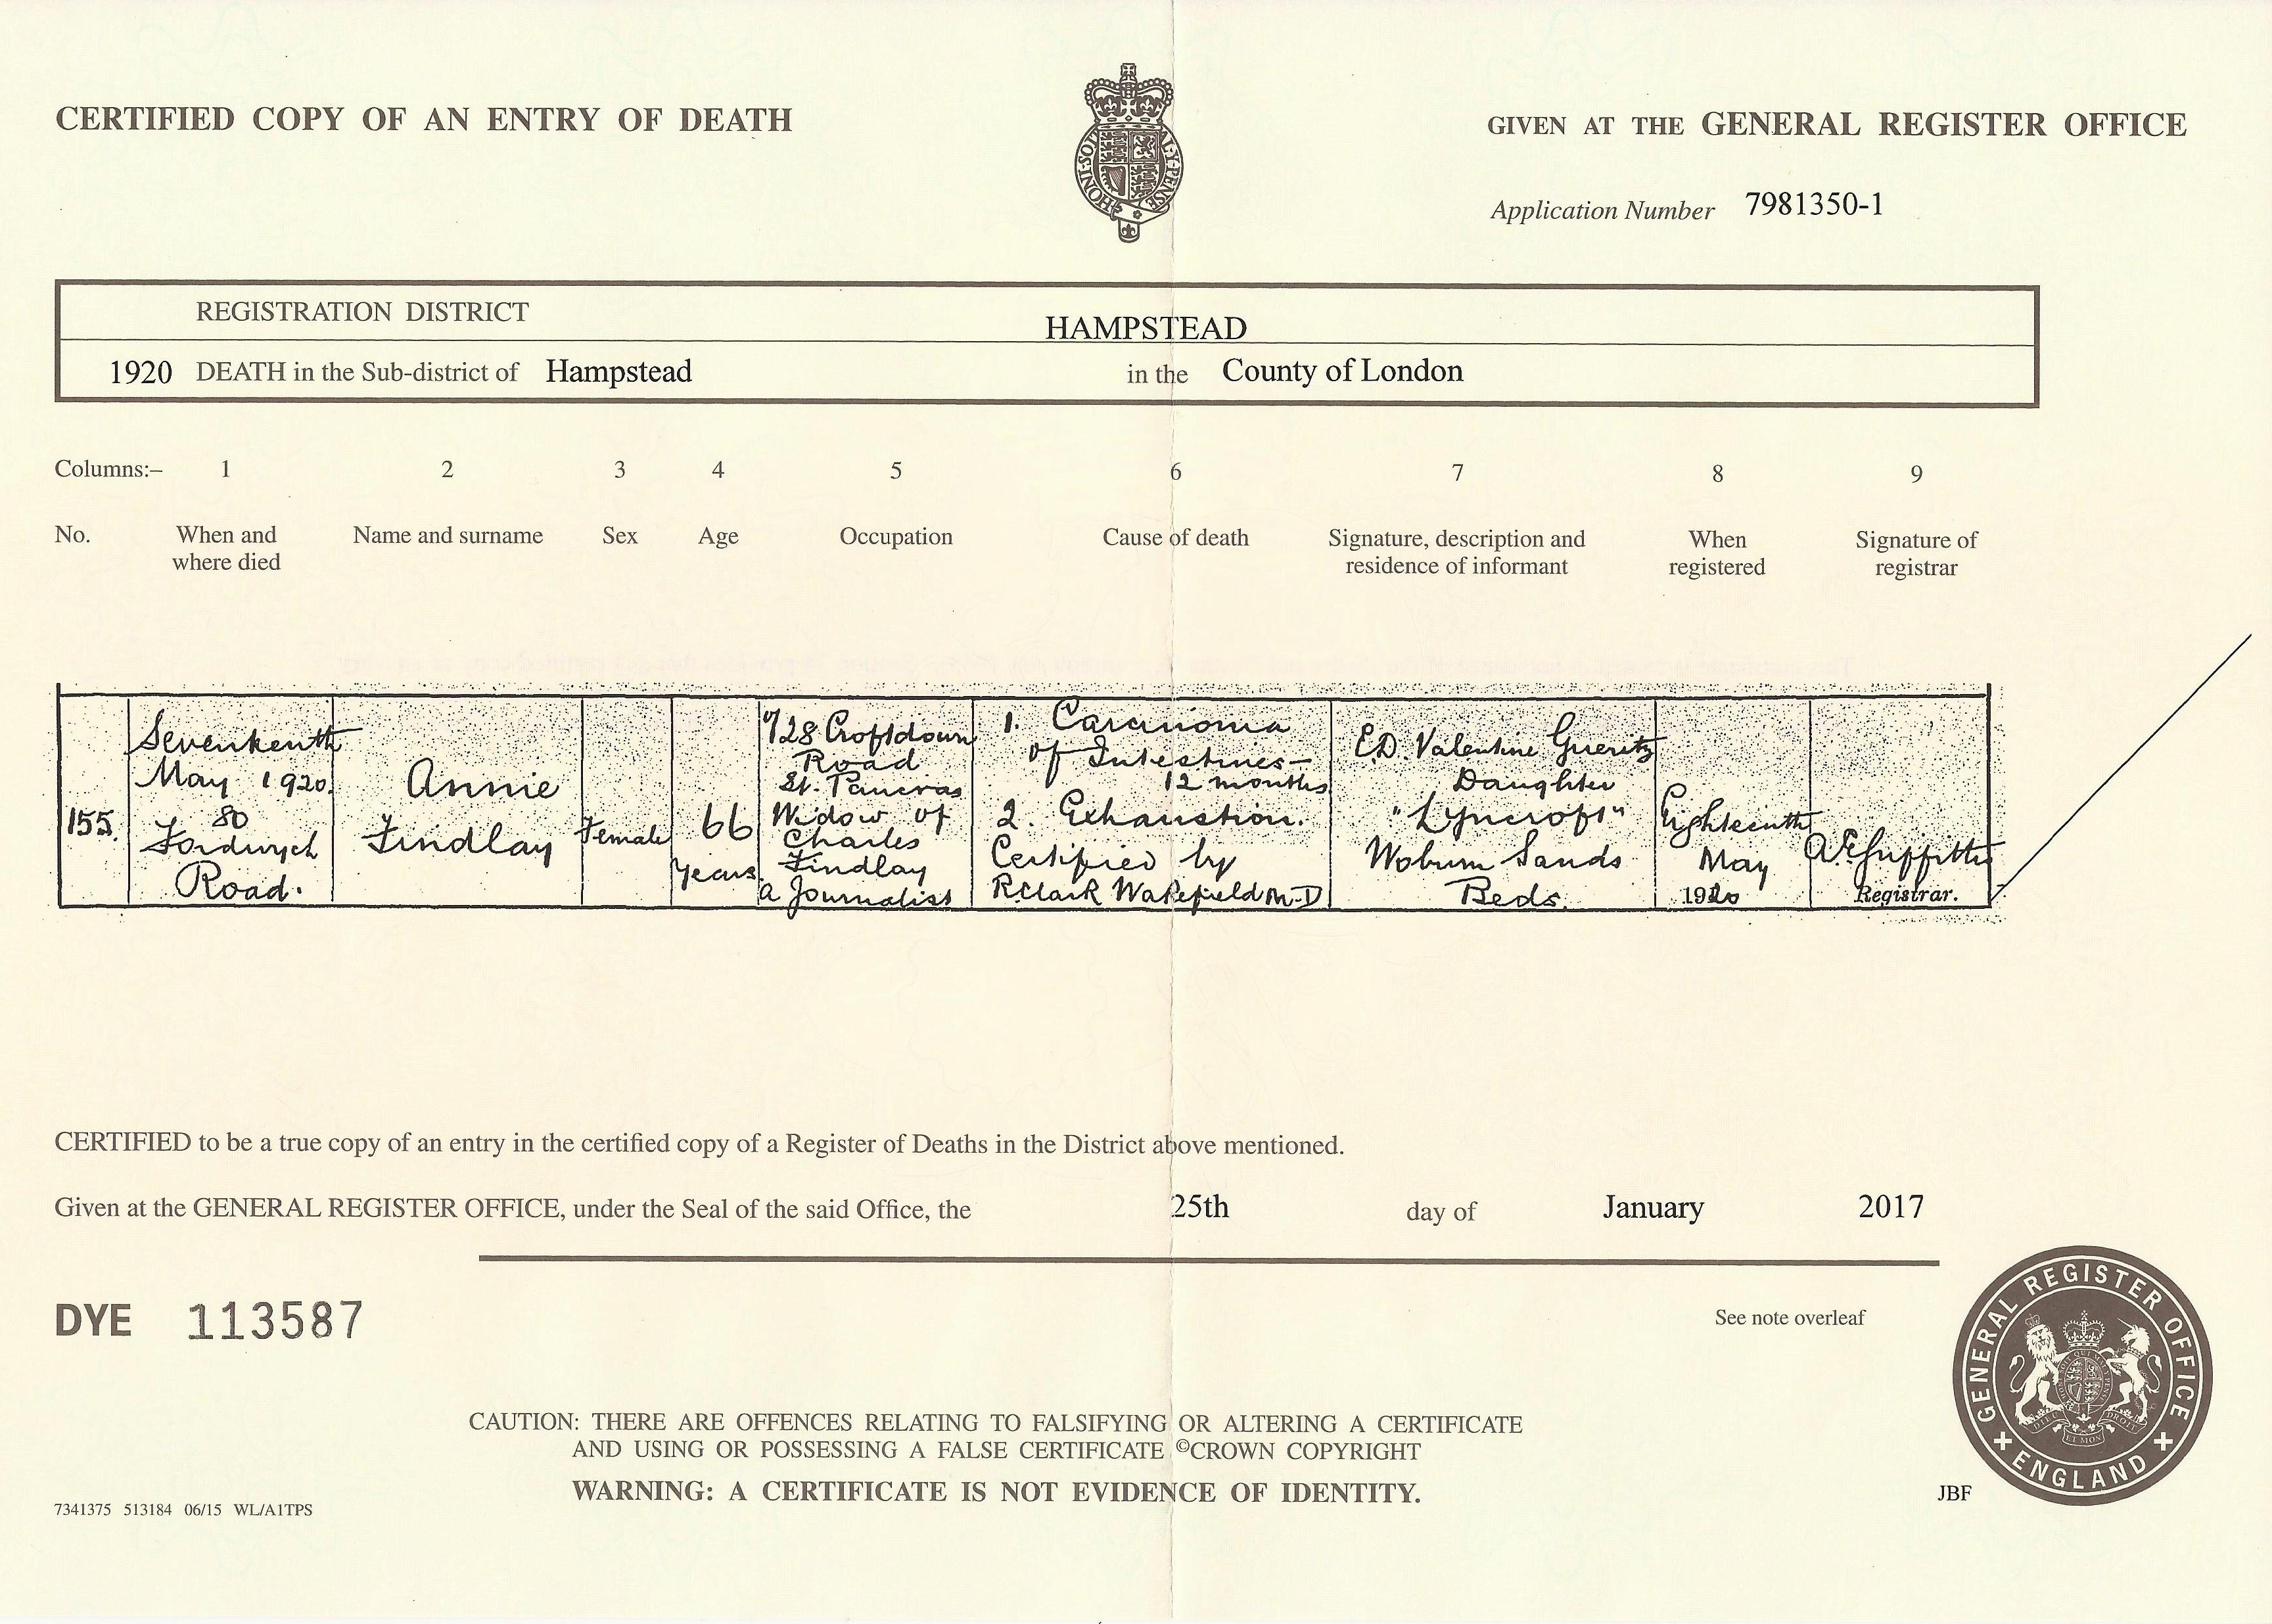 CERTIFIED COPY OF AN ENTRY OF DEATH
GIVEN AT THE GENERAL REGISTER OFFICE
HONI·SOIT
MAL·Y·PENSE
Application Number 7981350-1
REGISTRATION DISTRICT HAMPSTEAD
1920 DEATH in the Sub-district of Hampstead in the County of London
Columns:– 1 2 3 4 5 6 7 8 9
No. When and where died Name and surname Sex Age Occupation Cause of death Signature, description and residence of informant When registered Signature of registrar
155.
Seventeenth
May 1920.
80
Fordwych
Road.
Annie
Findlay
Female
66
Years.
28 Croftdown
Road
St. Pancras
Widow of
Charles
Findlay
a Journalist
1. Carcinoma
of Intestines—
12 months
2. Exhaustion.
Certified by
R Clark Wakefield M.D
E.D. Valentine Gueritz
Daughter
"Lyncroft"
Woburn Sands
Beds.
Eighteenth
May
1920
Griffiths
Registrar.
CERTIFIED to be a true copy of an entry in the certified copy of a Register of Deaths in the District above mentioned.
Given at the GENERAL REGISTER OFFICE, under the Seal of the said Office, the 25th day of January 2017
DYE 113587
See note overleaf
GENERAL REGISTER OFFICE
ENGLAND
CAUTION: THERE ARE OFFENCES RELATING TO FALSIFYING OR ALTERING A CERTIFICATE
AND USING OR POSSESSING A FALSE CERTIFICATE ©CROWN COPYRIGHT
WARNING: A CERTIFICATE IS NOT EVIDENCE OF IDENTITY.
7341375 513184 06/15 WL/A1TPS
JBF